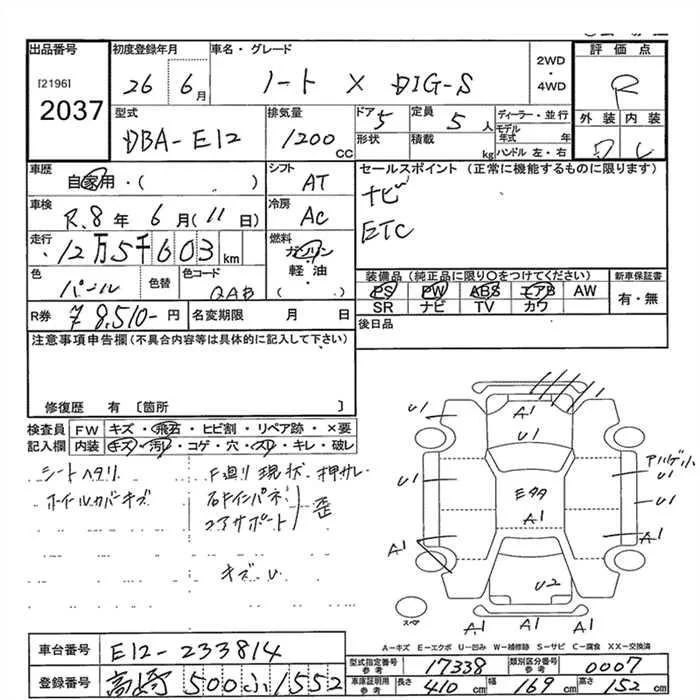 出品番号 初度登録年月 車名・グレード 2WD・4WD 評価点
[2196] 2037 26 6月 ノート X DIG-S R
型式 排気量 ドア 定員 ディーラー・並行 外装 内装
DBA-E12 1200CC 5 5人 モデル年式 年
形状 積載 kg ハンドル 左・右
車歴 シフト セールスポイント (正常に機能するものに限ります)
自家用・( ) AT ナビ
車検 冷房 ETC
R.8年 6月(11日) AC
走行 燃料
12万5千603km ガソリン
軽油
色 色替 色コード ( )
パール QAB
装備品(純正品に限り〇をつけてください) 新車保証書
PS PW ABS エアB AW 有・無
SR ナビ TV カワ
R券 ¥8,510-円 名変期限 月 日 後日品
注意事項申告欄(不具合内容等は具体的に記入して下さい)
修復歴 有 〔箇所 〕
検査員 FW キズ・飛石・ヒビ割・リペア跡・×要
記入欄 内装 キズ・汚レ・コゲ・穴・スレ・キレ・破レ
シートヘタリ F廻り現状 押サレ
ホイールカバーキズ 右ドインパネ
コアサポート 歪
キズ U
U1 A1 U1
U1 エクク U1
U1
A1 A1 A1
U2
A1
スペア
A-キズ E-エクボ U-凹み W-補修跡 S-サビ C-腐食 XX-交換済
車台番号 E12-233814
型式指定番号 参考 17338 類別区分番号 参考 0007
登録番号 高崎 500 ふ 1552
車庫証明用 参考 長さ 410cm 幅 169cm 高さ 152cm